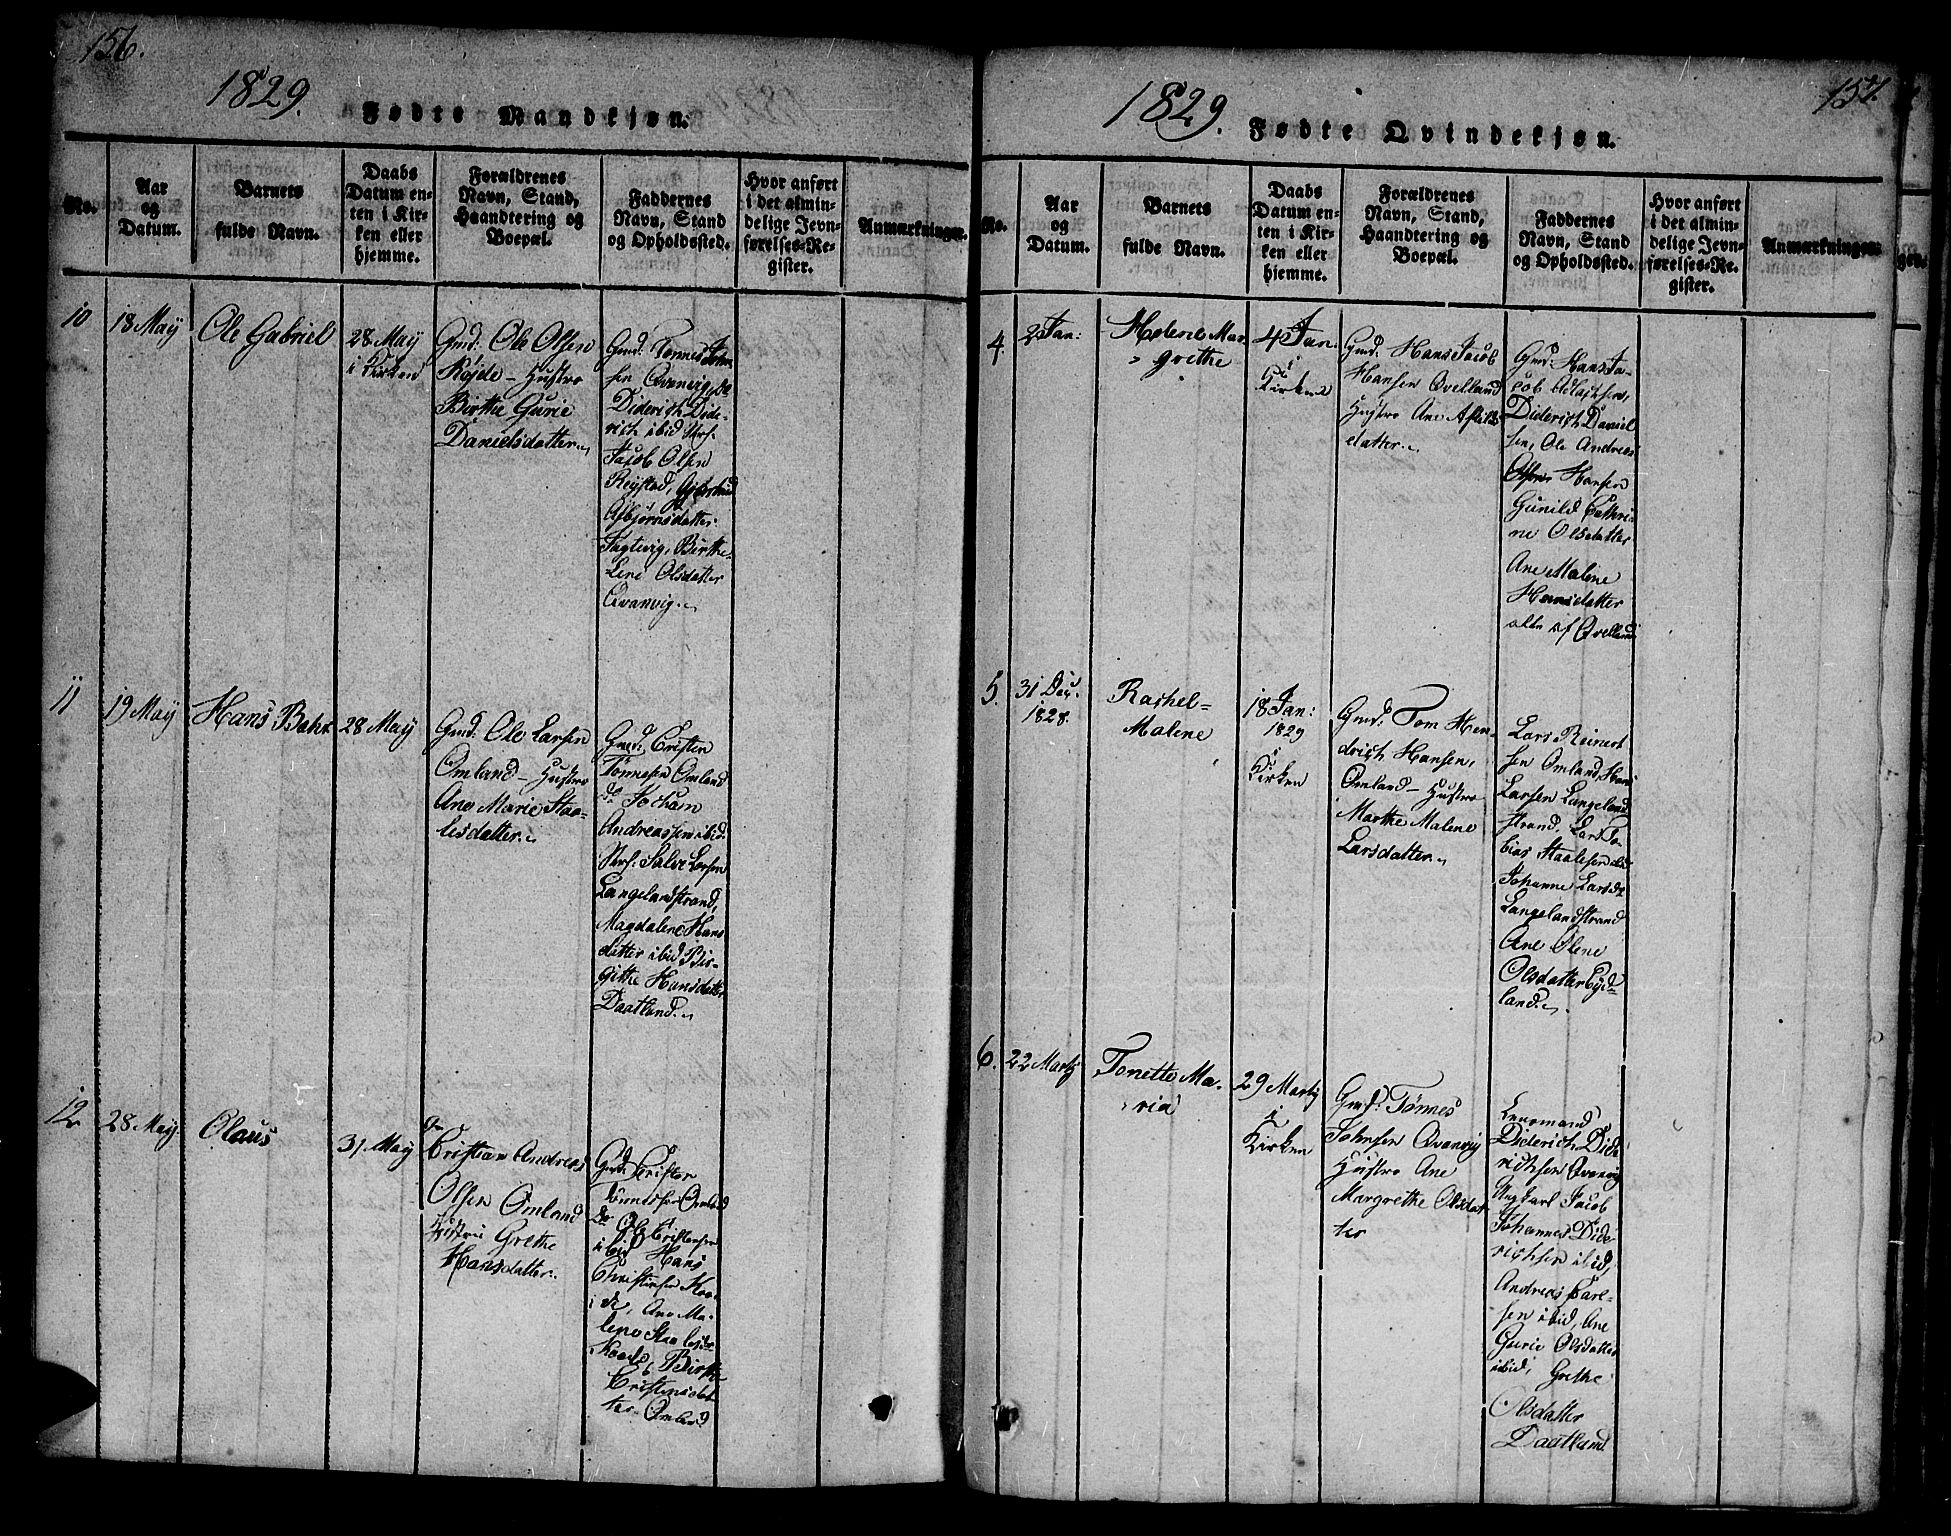 156.
1829.
Fødte Mandkjøn.
No.
Aar
og
Datum.
Barnets
fulde Navn.
Daabs
Datum en-
ten i Kir-
ken eller
hjemme.
Forældrenes
Navn, Stand,
Haandtering og
Boepæl.
Faddernes
Navn, Stand
og Opholdssted.
Hvor anført
i det almin-
delige Jevn-
førelses-Re-
gister.
Anmærkninger.
10
18 May
Ole Gabriel
28 May
i Kirken
Gmd. Ole Olsen
Røjde - Hustro
Birthe Gurie
Danielsdatter
Gmd. Tønnes John-
sen Qvanvig, do
Diderich Dide-
rich ibid
Jacob Olsen
Røystad,
Asbjørnsdatter
Birthe
Lene Olsdatter
Qvanvig.
11
19 May
Hans Behr
28 May
Gmd. Ole Larsen
Omland - Hustro
Ane Marie Staa-
lesdatter
Gmd. Cristen
Tønnesen Omland
do Jocham
Andreassen ibid
Salve Larsen
Langelandstrand,
Magdalene Hans
datter ibid Bir-
githe Hansdatter
Daatland.
12
28 May
Olaus
31 May
Cristian Andreas
Olsen Omland
Hustru Grethe
Hansdatter.
Gmd. Crister
Tønnessen Omland
do Ole Cristensen
ibid Hans
Christensen Kaa-
de, Ane Ma-
lene Staalesdr
Kaade, Birthe
Cristensdat-
ter Omland
157.
1829.
Fødte Qvindekjøn.
No.
Aar
og
Datum.
Barnets
fulde Navn.
Daabs
Datum en-
ten i Kir-
ken eller
hjemme.
Forældrenes
Navn, Stand,
Haandtering og
Boepæl.
Faddernes
Navn, Stand
og Opholdssted.
Hvor anført
i det almin-
delige Jevn-
førelses-Re-
gister.
Anmærkninger.
4.
2 Jan:
Helene Mar-
grethe
4 Jan.
i
Kirken
Gmd. Hans Jacob
Hansen Qvelland
Hustro Ane
datter.
Gmd. Hans Ja-
cob
Diderich Daniel
sen, Ole Andreas
Hansen
Gunild Cathri-
ne Olsdatter
Ane Malene
Hansdatter
alle af Qvelland
5.
31 Dec.
1828.
Rachel-
Malene
18 Jan:
1829
i
Kirken
Gmd. Tom Hen-
drich Hansen,
Omland - Hustro
Marthe Malene
Larsdatter.
Lars Reinert
sen Omland, Hans
Larsen Langeland
strand, Lars To-
bias Staalesen ibid
Johanne Larsdr
Langelandstrand
Ane Olene
Olsdatter Eyd-
land.
6.
22 Martj
Tonette Ma-
ria
29 Martj
i
Kirken
Gmd. Tønnes
Johnsen Qvanvig
Hustro Ane
Margrethe Olsdat
ter
Leermand
Diderich Dide
richsen Qvanvig
Ungkarl Jacob
Johannes Dide-
richsen ibid,
Andreas Carl-
sen ibid, Ane
Gurie Olsdatter
ibid, Grethe
Olsdatter
Daatland